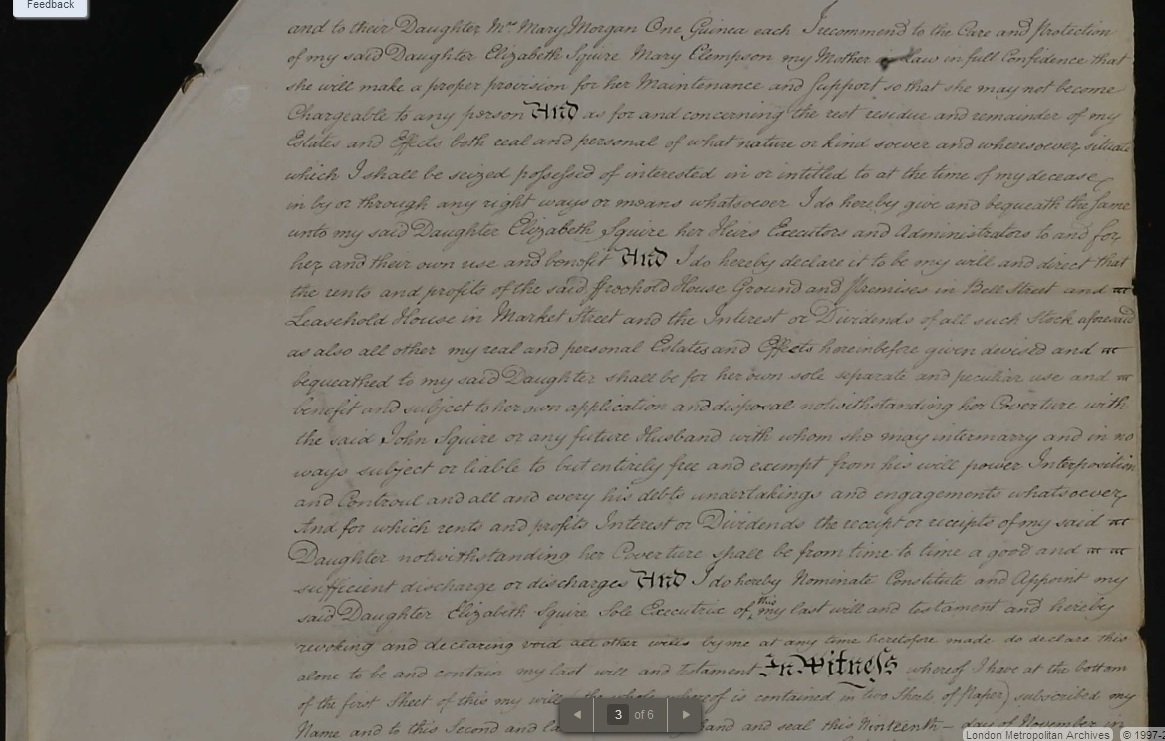 Feedback
and to their Daughter Mrs. Mary Morgan One Guinea each I recommend to the Care and Protection
of my said Daughter Elizabeth Squire Mary Clempson my Mother in law in full Confidence that
she will make a proper provision for her Maintenance and Support so that she may not become
Chargeable to any person And as for and concerning the rest residue and remainder of my
Estates and Effects both real and personal of what nature or kind soever and wheresoever situate
which I shall be seized possessed of interested in or intitled to at the time of my decease
in by or through any right ways or means whatsoever I do hereby give and bequeath the same
unto my said Daughter Elizabeth Squire her Heirs Executors and Administrators to and for
her and their own use and benefit And I do hereby declare it to be my will and direct that
the rents and profits of the said ffreehold House Ground and Premises in Bell Street and
Leasehold House in Market Street and the Interest or Dividends of all such Stock aforesaid
as also all other my real and personal Estates and Effects hereinbefore given devised and
bequeathed to my said Daughter shall be for her own sole separate and peculiar use and
benefit and subject to her own application and disposal notwithstanding her Coverture with
the said John Squire or any future Husband with whom she may intermarry and in no
ways subject or liable to but entirely free and exempt from his will power Interposition
and Controul and all and every his debts undertakings and engagements whatsoever
And for which rents and profits Interest or Dividends the receipt or receipts of my said
Daughter notwithstanding her Coverture shall be from time to time a good and
sufficient discharge or discharges And I do hereby Nominate Constitute and Appoint my
said Daughter Elizabeth Squire Sole Executrix of this my last will and testament and hereby
revoking and declaring void all other wills by me at any time heretofore made do declare this
alone to be and contain my last will and testament In Witness whereof I have at the bottom
of the first Sheet of this my will (the whole whereof is contained in two Sheets of Paper) subscribed my
Name and to this Second and hand and seal this Nineteenth day of November in
3 of 6
London Metropolitan Archives © 1997-2